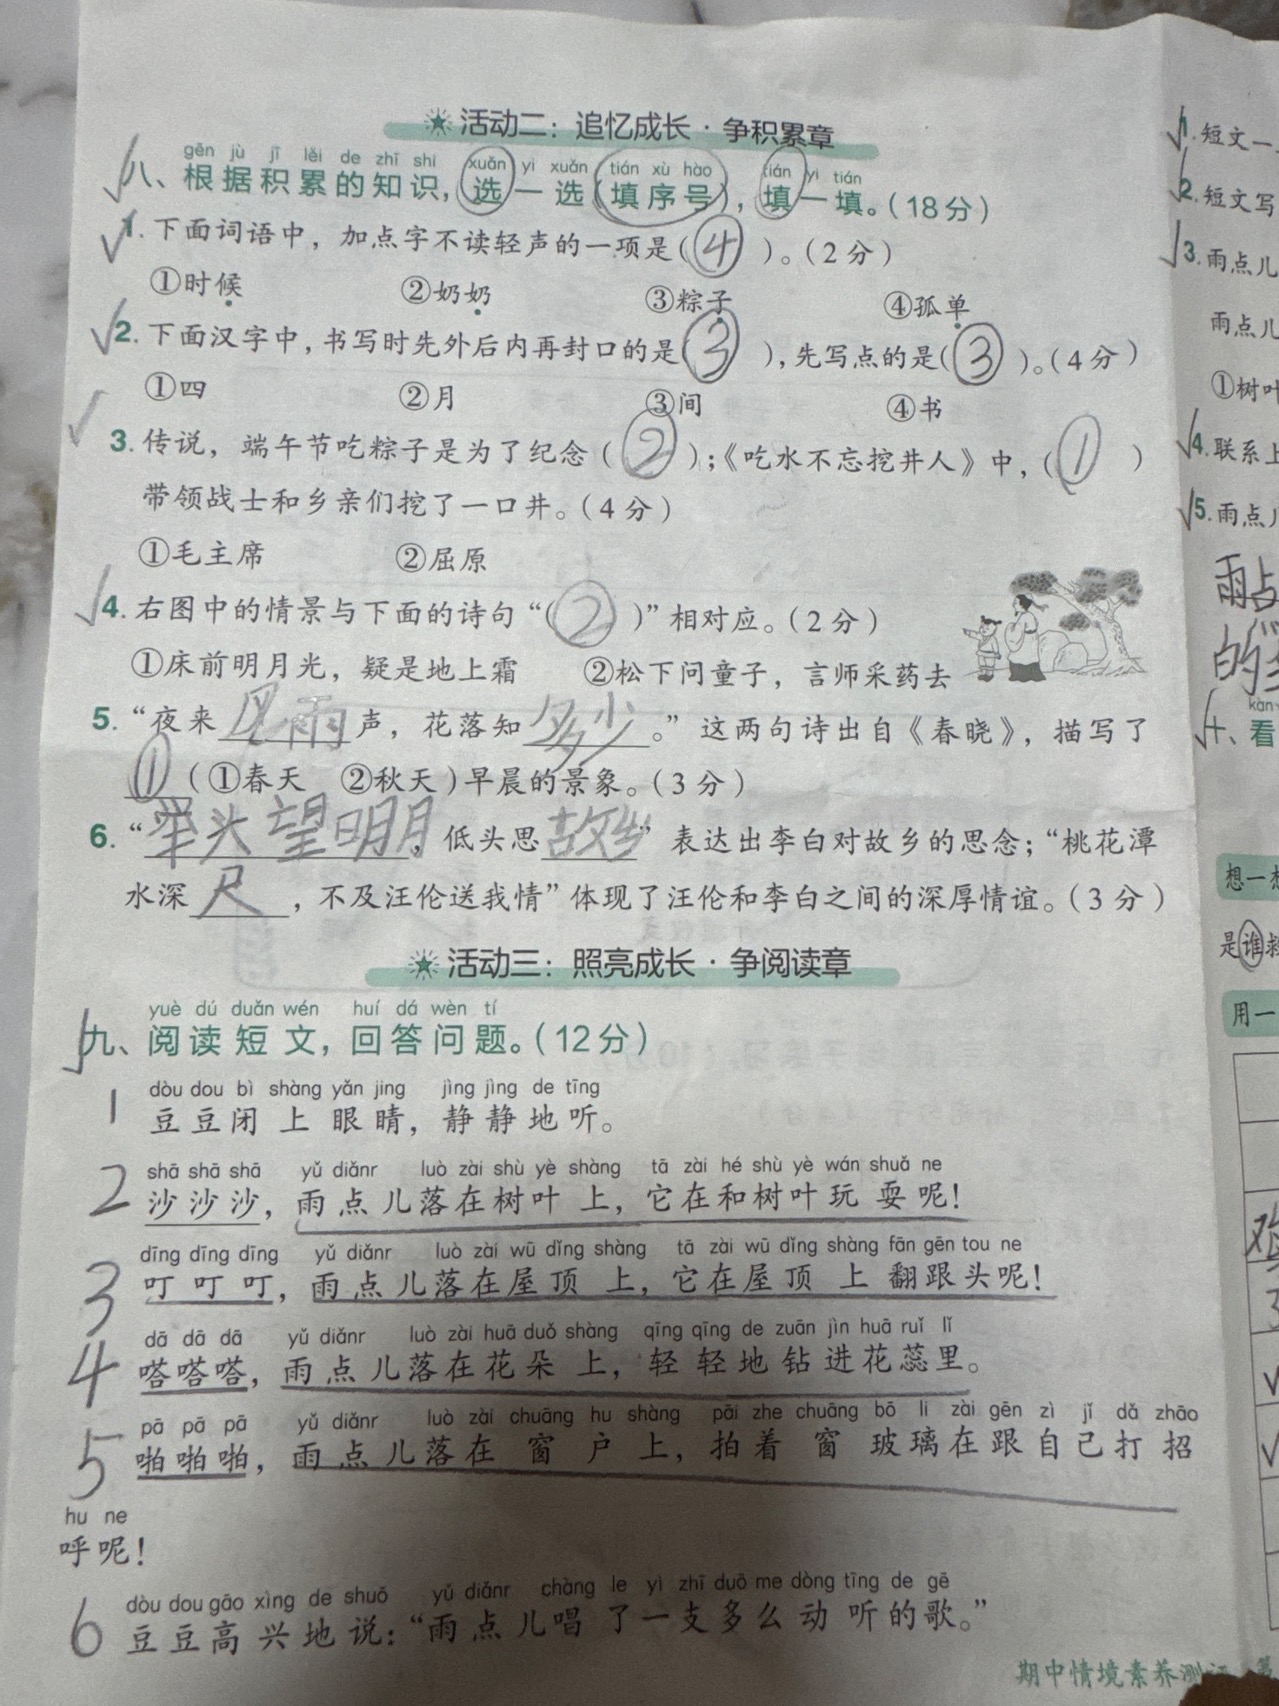 活动二：追忆成长·争积累章
gēn jù jī lěi de zhī shi xuǎn yi xuǎn tián xù hào tián yi tián
八、根据积累的知识，选一选(填序号)，填一填。(18分)
1. 下面词语中，加点字不读轻声的一项是( 4 )。(2分)
①时候 ②奶奶 ③粽子 ④孤单
2. 下面汉字中，书写时先外后内再封口的是( 3 )，先写点的是( 3 )。(4分)
①四 ②月 ③间 ④书
3. 传说，端午节吃粽子是为了纪念( 2 )；《吃水不忘挖井人》中，( 1 )
带领战士和乡亲们挖了一口井。(4分)
①毛主席 ②屈原
4. 右图中的情景与下面的诗句“( 2 )”相对应。(2分)
①床前明月光，疑是地上霜 ②松下问童子，言师采药去
5. “夜来风雨声，花落知多少。”这两句诗出自《春晓》，描写了
① (①春天 ②秋天)早晨的景象。(3分)
6. “举头望明月，低头思故乡”表达出李白对故乡的思念；“桃花潭
水深尺，不及汪伦送我情”体现了汪伦和李白之间的深厚情谊。(3分)
活动三：照亮成长·争阅读章
yuè dú duǎn wén huí dá wèn tí
九、阅读短文，回答问题。(12分)
dòu dou bì shàng yǎn jing jìng jìng de tīng
1 豆豆闭上眼睛，静静地听。
shā shā shā yǔ diǎnr luò zài shù yè shàng tā zài hé shù yè wán shuǎ ne
2 沙沙沙，雨点儿落在树叶上，它在和树叶玩耍呢！
dīng dīng dīng yǔ diǎnr luò zài wū dǐng shàng tā zài wū dǐng shàng fān gēn tou ne
3 叮叮叮，雨点儿落在屋顶上，它在屋顶上翻跟头呢！
dā dā dā yǔ diǎnr luò zài huā duǒ shàng qīng qīng de zuān jìn huā ruǐ lǐ
4 嗒嗒嗒，雨点儿落在花朵上，轻轻地钻进花蕊里。
pā pā pā yǔ diǎnr luò zài chuāng hu shàng pāi zhe chuāng bō li zài gēn zì jǐ dǎ zhāo
5 啪啪啪，雨点儿落在窗户上，拍着窗玻璃在跟自己打招
hu ne
呼呢！
dòu dou gāo xìng de shuō yǔ diǎnr chàng le yì zhī duō me dòng tīng de gē
6 豆豆高兴地说：“雨点儿唱了一支多么动听的歌。”
期中情境素养测
1. 短文一
2. 短文写
3. 雨点儿
雨点儿
①树叶
4. 联系上
5. 雨点儿
雨点
的
kàn
十、看
想一想
是谁救
用一